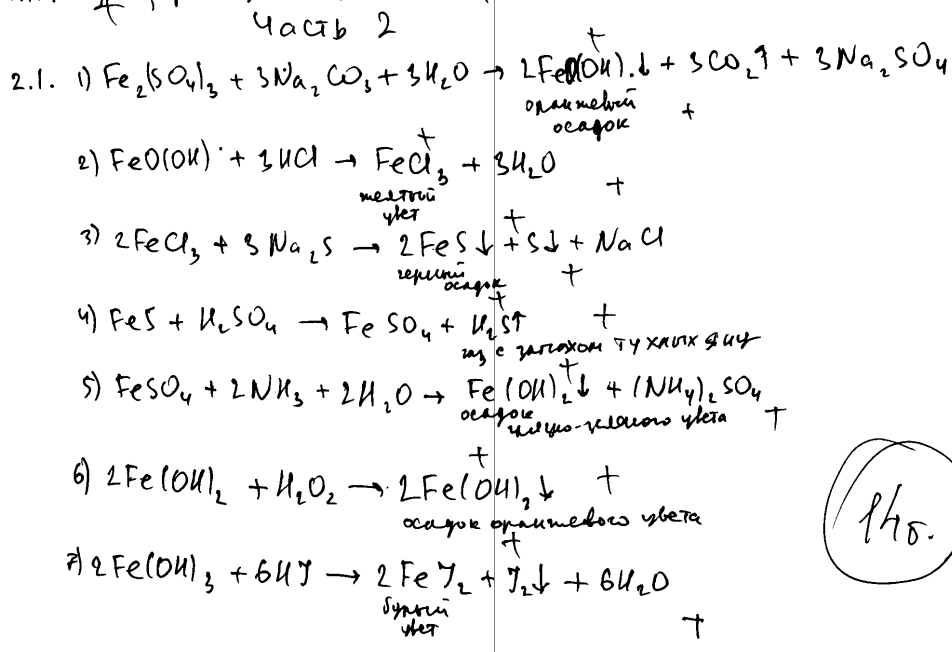 Часть 2
2.1. 1) Fe₂(SO₄)₃ + 3Na₂CO₃ + 3H₂O → 2FeO(OH)↓ + 3CO₂↑ + 3Na₂SO₄
+
оранжевый
осадок +
2) FeO(OH) + 3HCl → FeCl₃ + 3H₂O
+
желтый
цвет +
3) 2FeCl₃ + 3Na₂S → 2FeS↓ + S↓ + NaCl
+
черный
осадок +
4) FeS + H₂SO₄ → FeSO₄ + H₂S↑ +
+
газ с запахом тухлых яиц
5) FeSO₄ + 2NH₃ + 2H₂O → Fe(OH)₂↓ + (NH₄)₂SO₄
+
осадок
серо-зеленого цвета +
6) 2Fe(OH)₂ + H₂O₂ → 2Fe(OH)₃↓ +
+
осадок оранжевого цвета
14б.
7) 2Fe(OH)₃ + 6HJ → 2FeJ₂ + J₂↓ + 6H₂O
+
бурый
цвет +